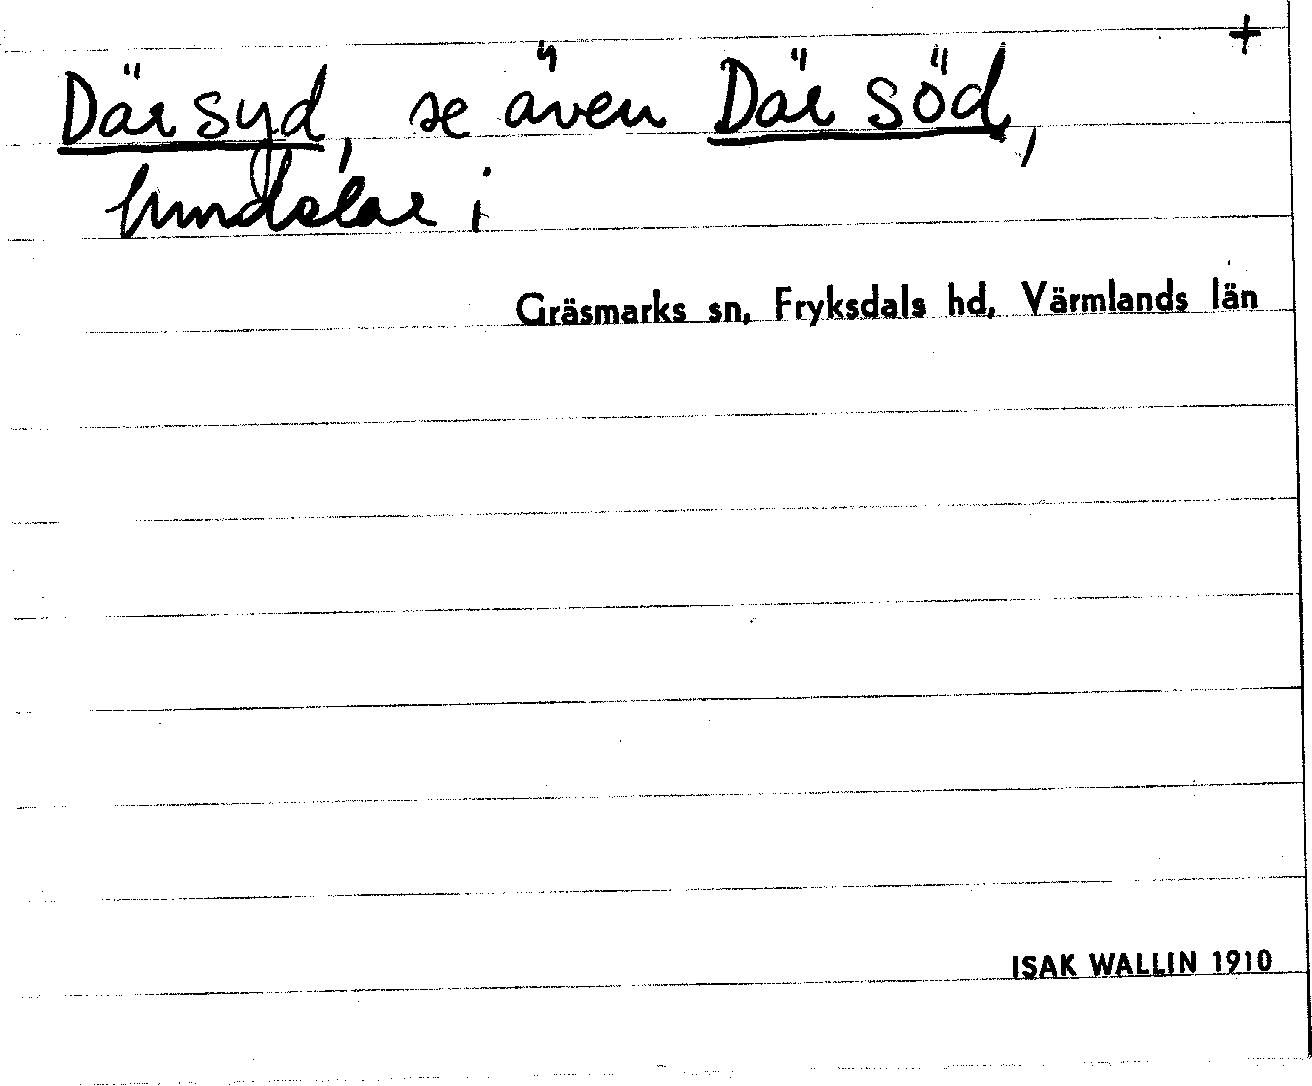 +
Där syd, se även Där söd,
hundalar i
Gräsmarks sn, Fryksdals hd, Värmlands län
ISAK WALLIN 1910